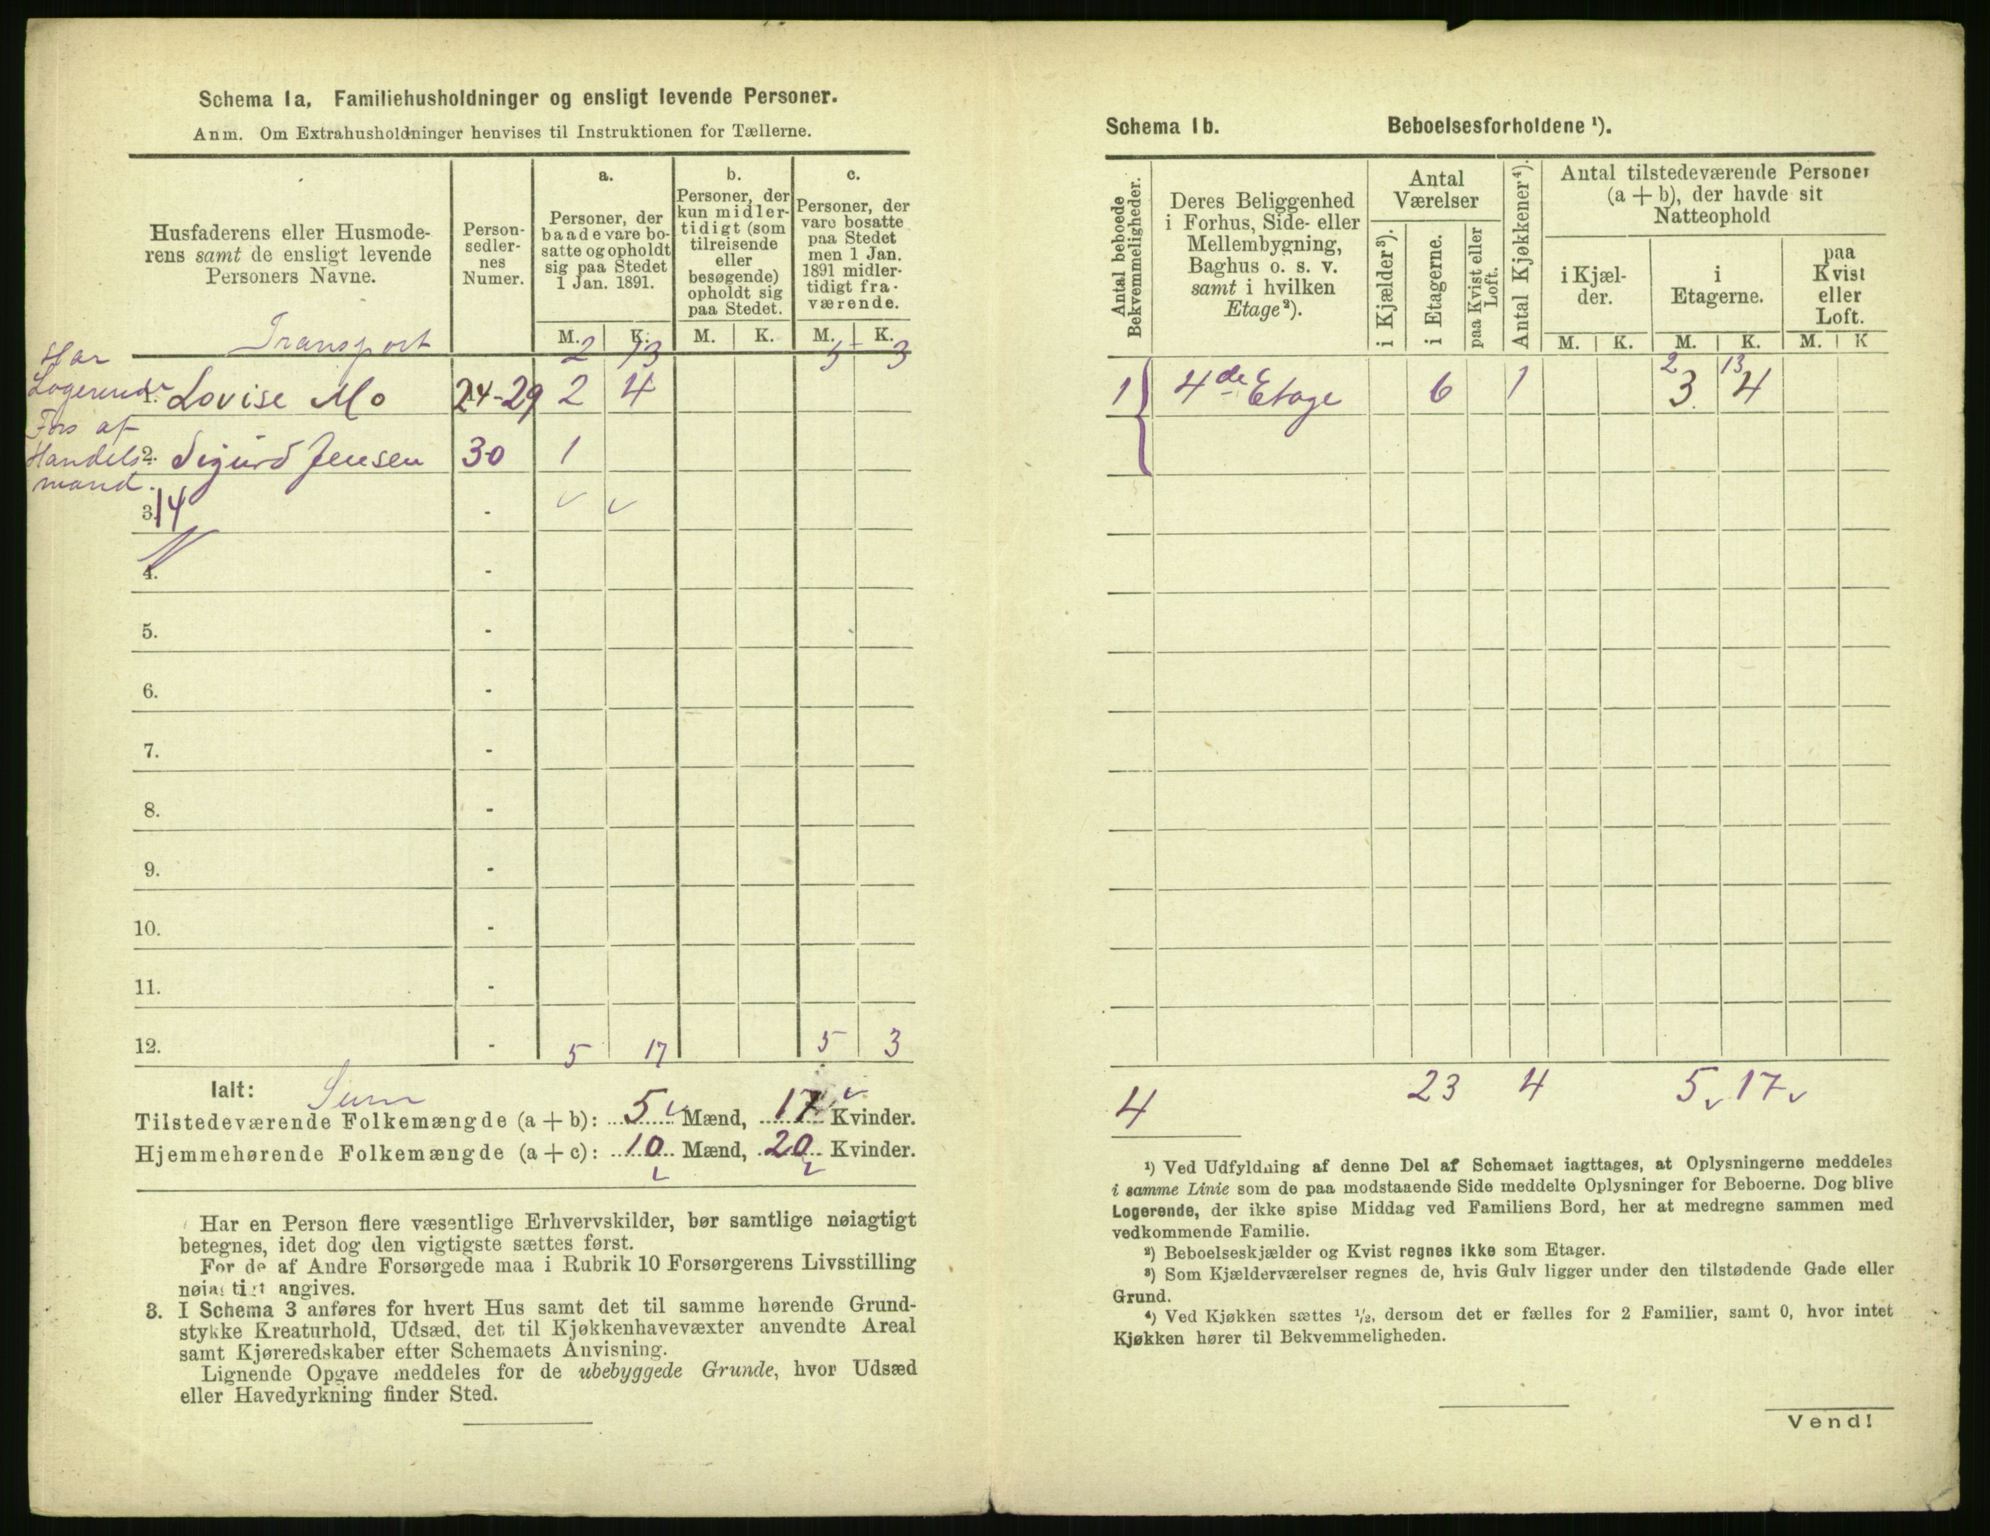 Schema 1a. Familiehusholdninger og ensligt levende Personer.
Anm. Om Extrahusholdninger henvises til Instruktionen for Tællerne.
Husfaderens eller Husmode-
rens samt de ensligt levende
Personers Navne.
Person-
sedler-
nes
Numer.
a.
Personer, der
baade vare bo-
satte og opholdt
sig paa Stedet
1 Jan. 1891.
b.
Personer, der
kun midler-
tidigt (som
tilreisende
eller
besøgende)
opholdt sig
paa Stedet.
c.
Personer, der
vare bosatte
paa Stedet
men 1 Jan.
1891 midler-
tidigt fra-
værende.
M. K. M. K. M. K.
Transport 2 13 5 3
Har
Logerende
Fors af
Handels
mand.
14
1. Lovise Mo 24-29 2 4
2. Sigurd Jensen 30 1
3. -
4. -
5. -
6. -
7. -
8. -
9. -
10. -
11. -
12. - 5 17 5 3
Ialt: Sum
Tilstedeværende Folkemængde (a + b): 5 Mænd, 17 Kvinder.
Hjemmehørende Folkemængde (a + c): 10 Mænd, 20 Kvinder.
Har en Person flere væsentlige Erhvervskilder, bør samtlige nøiagtigt
betegnes, idet dog den vigtigste sættes først.
For de af Andre Forsørgede maa i Rubrik 10 Forsørgerens Livsstilling
nøiagtigt angives.
3. I Schema 3 anføres for hvert Hus samt det til samme hørende Grund-
stykke Kreaturhold, Udsæd, det til Kjøkkenhavevæxter anvendte Areal
samt Kjøreredskaber efter Schemaets Anvisning.
Lignende Opgave meddeles for de ubebyggede Grunde, hvor Udsæd
eller Havedyrkning finder Sted.
Schema 1b. Beboelsesforholdene ¹).
Antal beboede
Bekvemmeligheder.
Deres Beliggenhed
i Forhus, Side- eller
Mellembygning,
Baghus o. s. v.
samt i hvilken
Etage²).
Antal
Værelser
i Kjælder³).
i Etagerne.
paa Kvist eller
Loft.
Antal Kjøkkener⁴).
Antal tilstedeværende Personer
(a + b), der havde sit
Natteophold
i Kjæl-
der.
i
Etagerne.
paa
Kvist
eller
Loft.
M. K. M. K. M. K
2 13
1 4de Etage 6 1 3 4
4 23 4 5 17
¹) Ved Udfyldning af denne Del af Schemaet iagttages, at Oplysningerne meddeles
i samme Linie som de paa modstaaende Side meddelte Oplysninger for Beboerne. Dog blive
Logerende, der ikke spise Middag ved Familiens Bord, her at medregne sammen med
vedkommende Familie.
²) Beboelseskjælder og Kvist regnes ikke som Etager.
³) Som Kjælderværelser regnes de, hvis Gulv ligger under den tilstødende Gade eller
Grund.
⁴) Ved Kjøkken sættes ½, dersom det er fælles for 2 Familier, samt 0, hvor intet
Kjøkken hører til Bekvemmeligheden.
Vend!